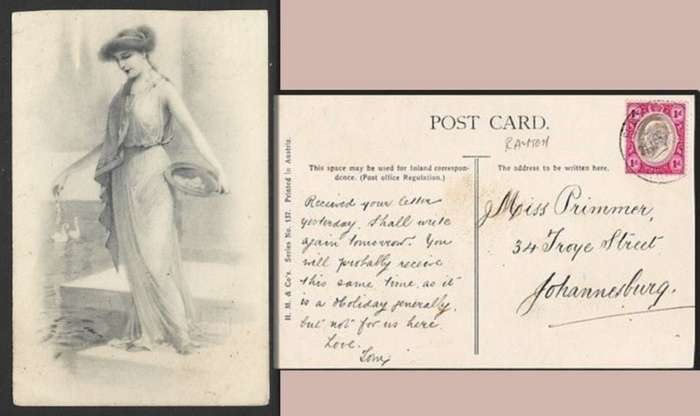 POST CARD.
RAMON
This space may be used for Inland correspon-
dence. (Post office Regulation.)
The address to be written here.
H. M. & Co's. Series No. 137. Printed in Austria.
Recieved your letter
yesterday. Shall write
again tomorrow. You
will probably receive
this same time, as it
is a Holiday generally,
but not for us here.
Love.
Miss Primmer,
34 Troye Street
Johannesburg.
1d
1d